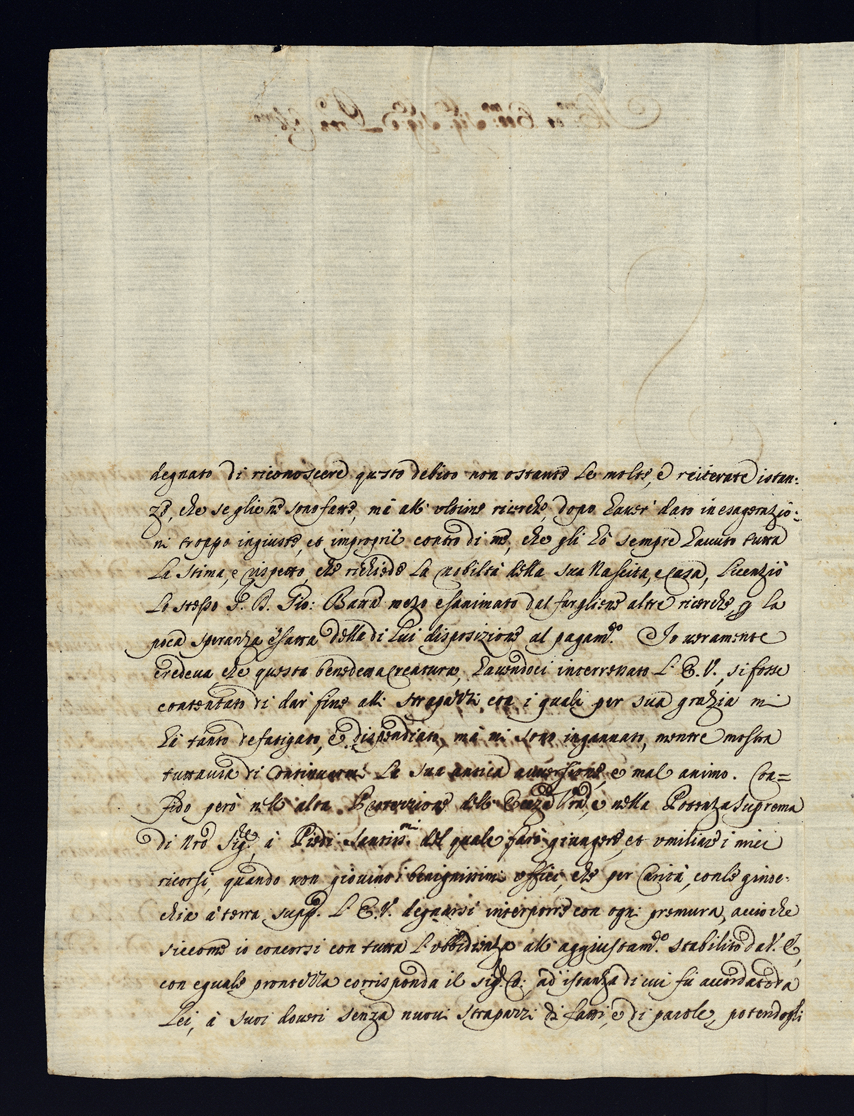 degnato di riconoscere questo debito non ostante le molte, e reiterate istan-
ze, che se gliene sono fatte, mà all' ultime ricerche, dopo haver dato in esagerazio-
ni troppo ingiuste, et improprie contro di me, che gli hò sempre havuto tutta
la stima, e rispetto, che richiede la nobiltà della sua Nascita, e Casa, licenziò
lo stesso P. D. Gio: Batta mezo esanimato dal fargliene altre ricerche, p la
poca speranza esatta della di lui disposizione al pagam.to Io veramente
credeva che questa benedetta Creatura, havendoci interessato l' E. V., si fosse
contentato di dar fine alli strapazzi, con i quali per sua grazia mi
hà tanto refatigato, e dispendiato, mà mi sono ingannato, mentre mostra
tuttavia di continuarmi la sua antica avversione, e mal animo. Con=
fido però nell' alta Protezzione dell' Eccza Vra, e nella Potenza Suprema
di Nro Sigre à Piedi Santissmi del quale farò giungere, et umiliare i miei
ricorsi, quando non giovino i benignissimi uffici, che per Carità, con le ginoc-
chia à terra, suppco l' E. V. degnarsi interporre con ogni premura, acciò che
siccome io concorsi con tutta l' obbidienza all' aggiustam.to stabilito da V. E.,
con eguale prontezza corrisponda il Sigr Co: ad istanza di cui fù accordato da
Lei, à suoi doveri senza nuovi strapazzi di fatti, e di parole, potendogli